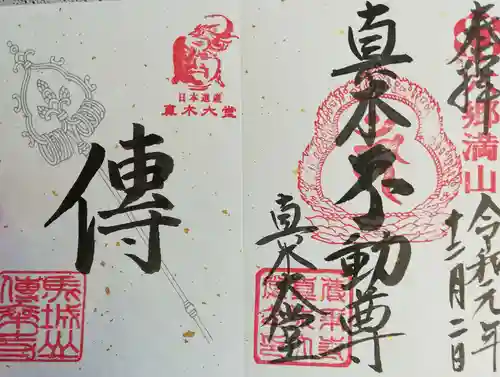 奉拝
郷満山
令和元年
十二月二日
真木不動尊
真木大堂
日本遺産
真木大堂
傳
馬城山
傳乗寺